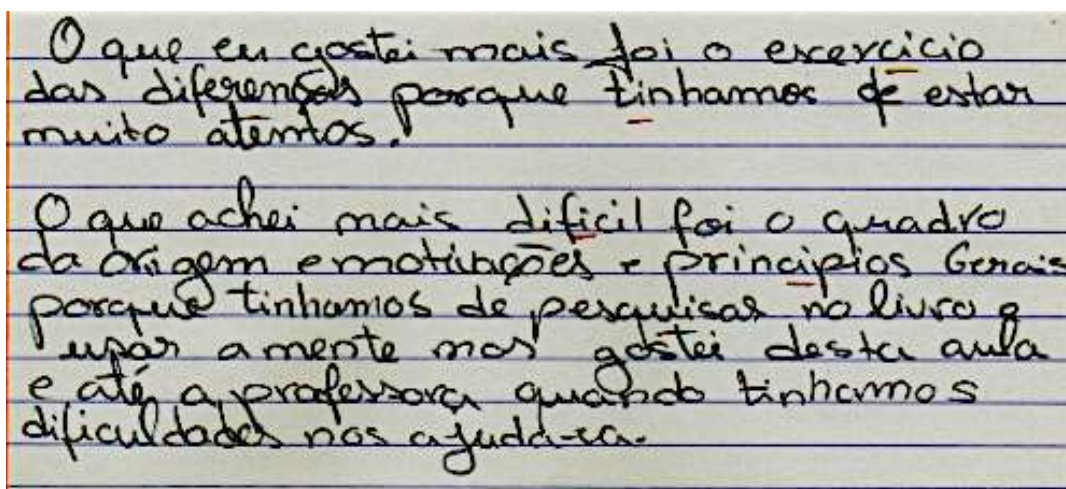 O que eu gostei mais foi o excercicio
das diferenças porque tinhamos de estar
muito atentos.
O que achei mais dificil foi o quadro
da origem e motivações e principios Gerais
porque tinhamos de pesquisar no livro e
usar a mente mas gostei desta aula
e até a professora quando tinhamos
dificuldades nos ajudava.